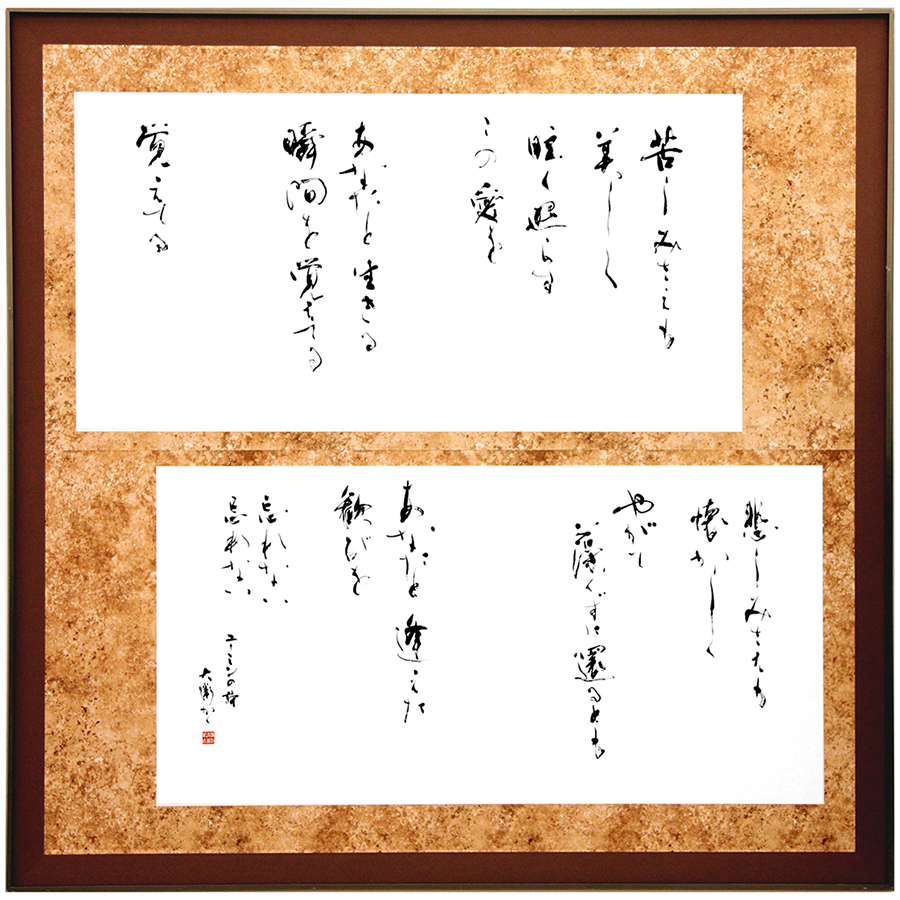 苦しみさえも
美しく
眩く照らす
この愛を
あなたと生きる
瞬間を覚えてる
覚えてる
悲しみさえも
懐かしく
やがて
くずに還るとも
あなたと逢えた
歓びを
忘れない
忘れない
ユーミンの詩